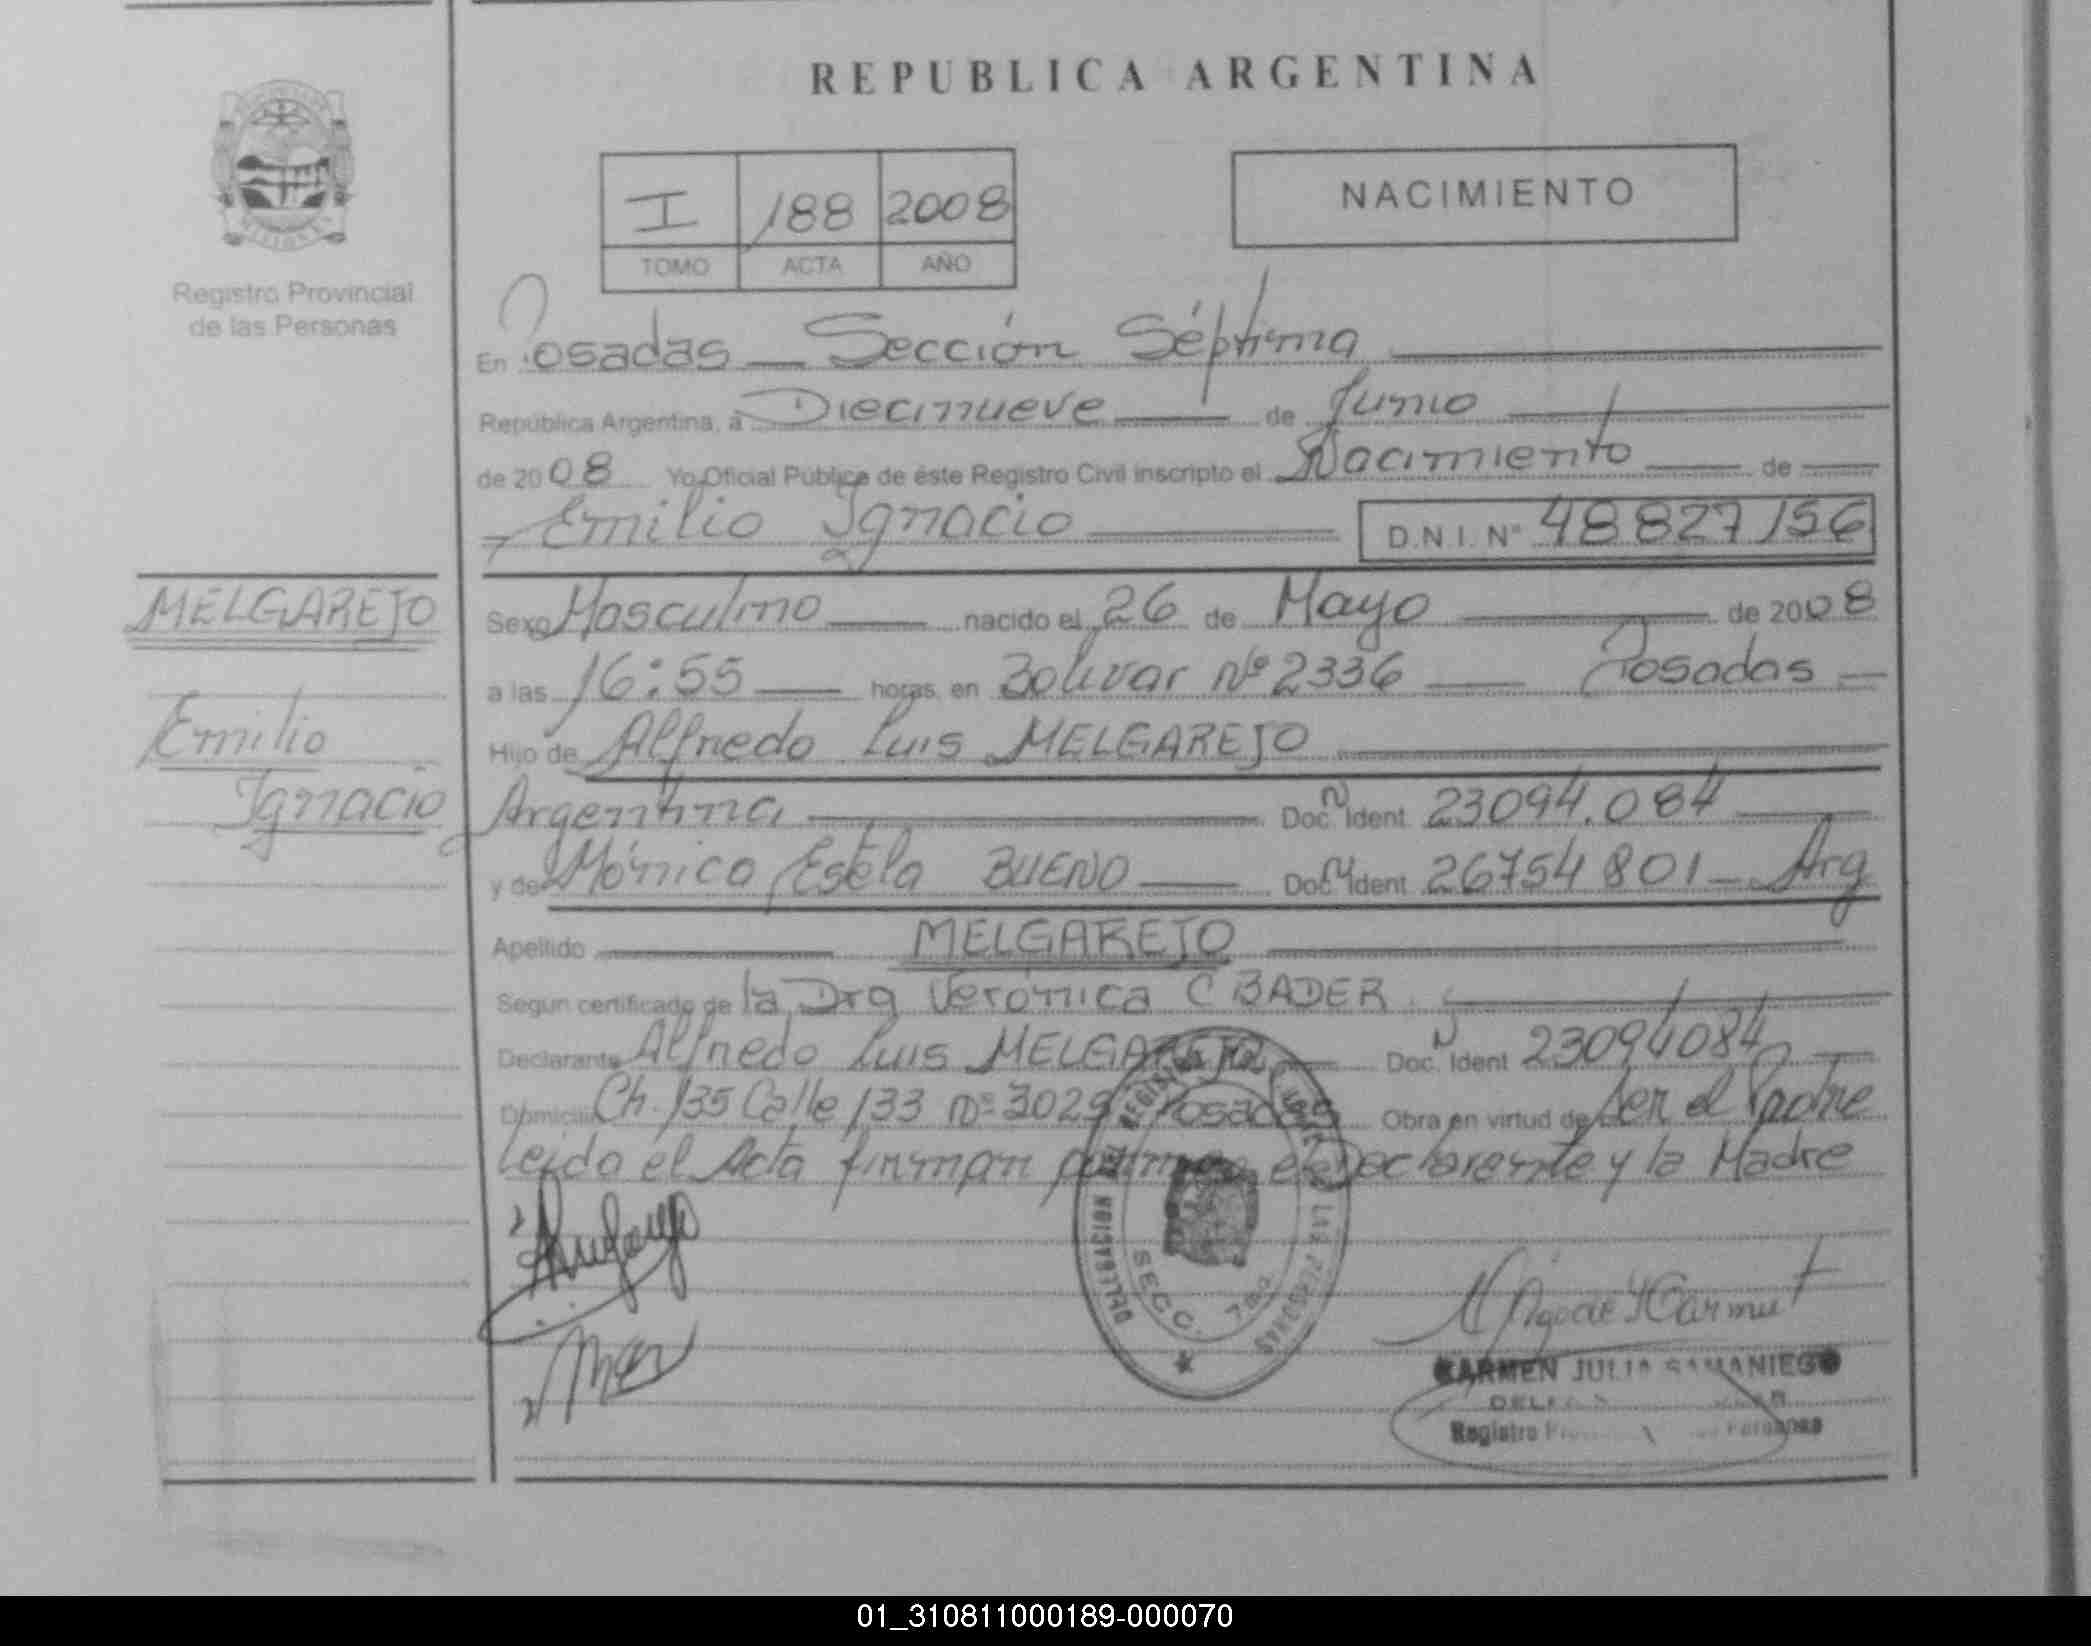 REPUBLICA ARGENTINA
I 188 2008
TOMO ACTA AÑO
NACIMIENTO
MISIONES
Registro Provincial
de las Personas
En Posadas — Sección Séptima
República Argentina, a Diecinueve de Junio
de 2008 Yo Oficial Público de éste Registro Civil inscripto el Nacimiento de
Emilio Ignacio D.N.I. Nº 48827156
MELGAREJO
Emilio
Ignacio
Sexo Masculino nacido el 26 de Mayo de 2008
a las 16:55 horas, en Bolivar Nº 2336 — Posadas
Hijo de Alfredo Luis MELGAREJO
Argentina Doc. Ident 23094.084
y de Mónica Estela BUENO Doc. Ident 26754801 — Arg
Apellido MELGAREJO
Segun certificado de la Dra Verónica C BADER
Declarante Alfredo Luis MELGAREJO Doc. Ident 23094084
Domicilio Ch. 135 Calle 133 nº 3029 Posadas Obra en virtud de ser el Padre
Leido el Acta firman el Declarante y la Madre
DELEGACION DEL REGISTRO LAS PERSONAS
SECC. 7ma.
CARMEN JULIA SAMANIEGO
Registro Personas
01_310811000189-000070